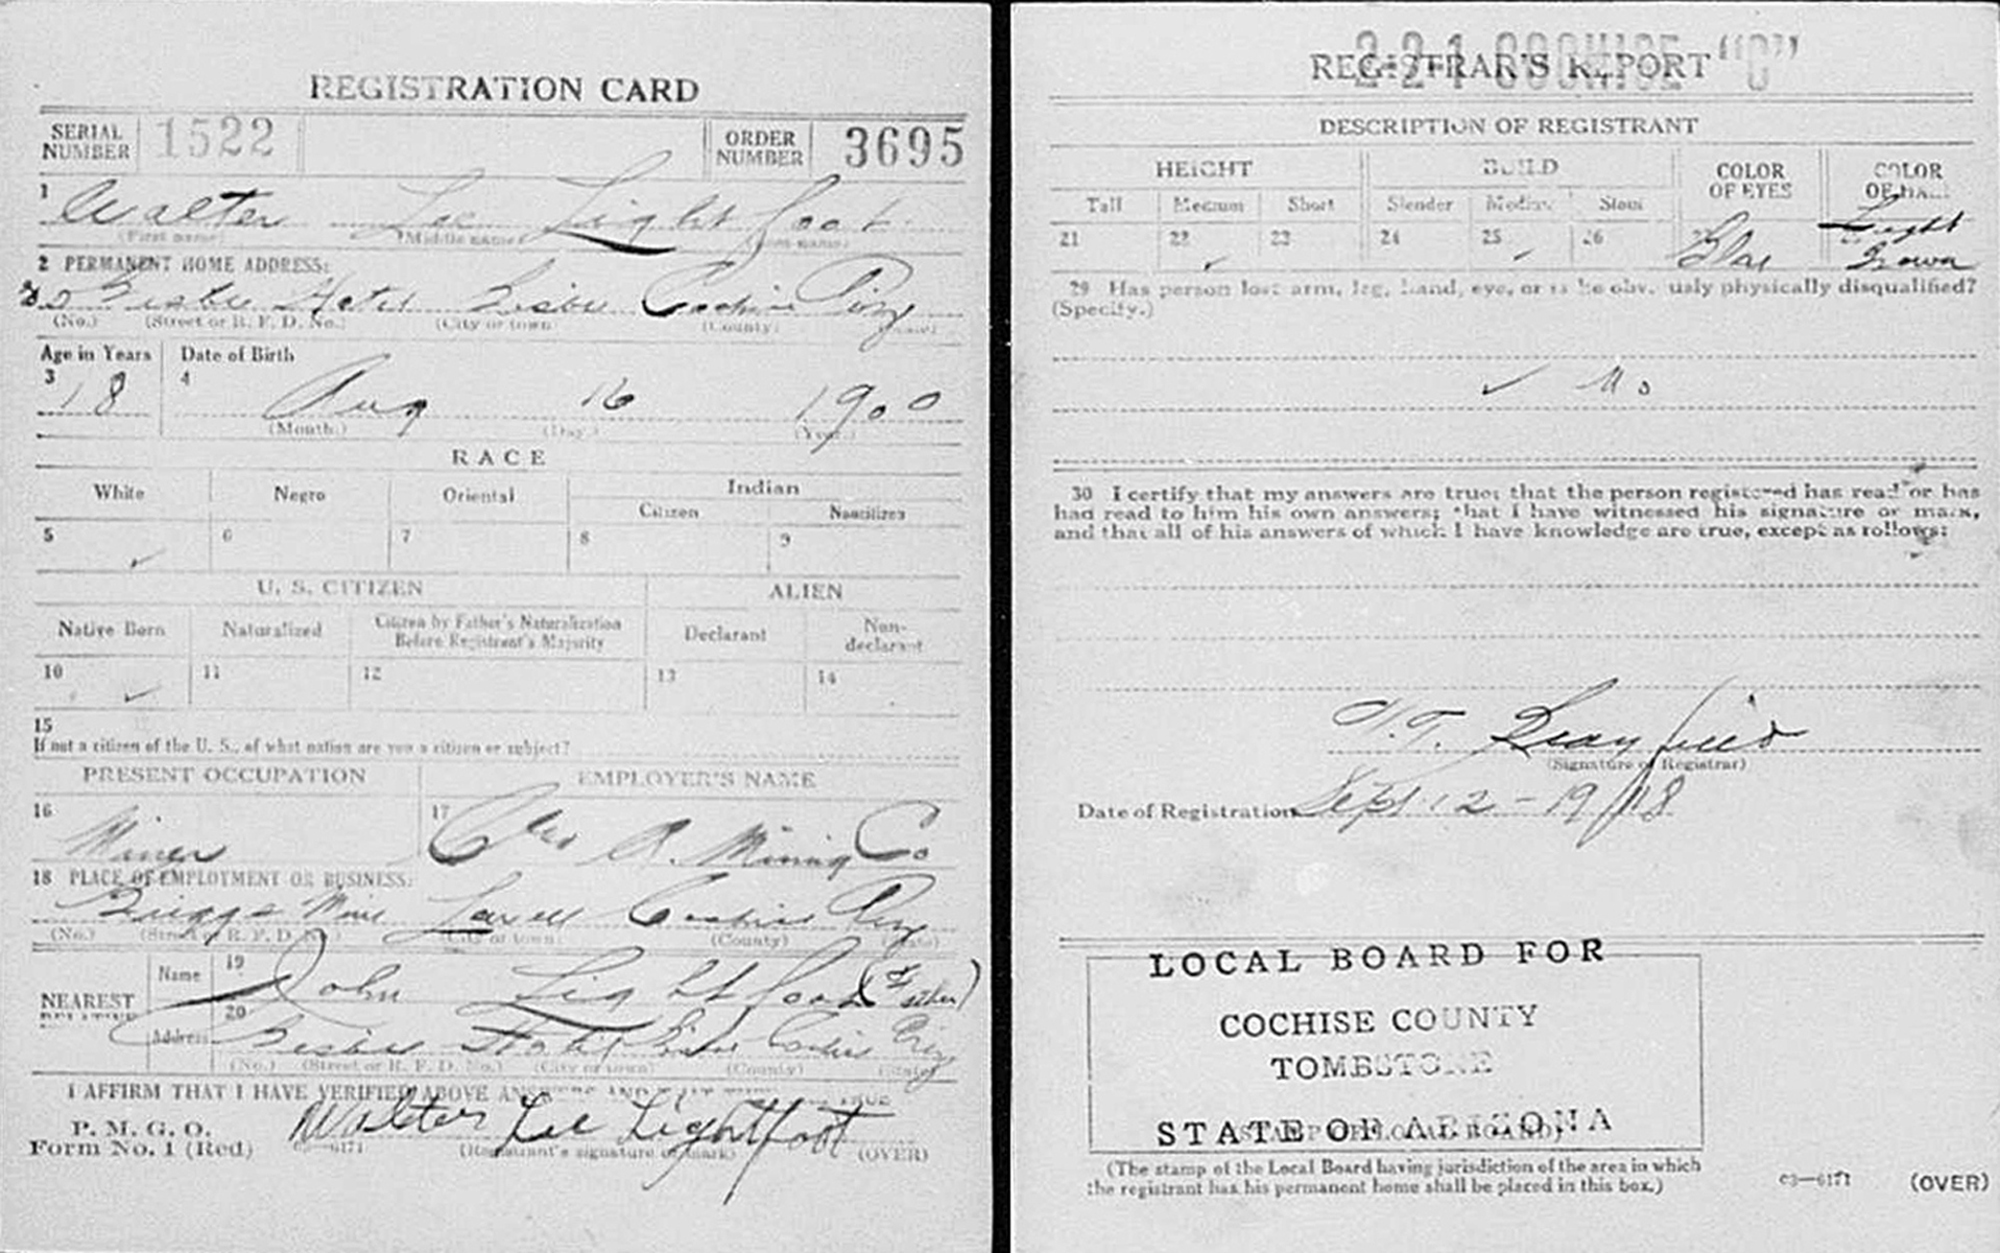 REGISTRATION CARD
SERIAL NUMBER 1522 ORDER NUMBER 3695
1 Walter Lee Lightfoot
(First name) (Middle name) (Last name)
2 PERMANENT HOME ADDRESS:
Bisbee Hotel Bisbee Cochise Ariz
(No.) (Street or R. F. D. No.) (City or town) (County) (State)
Age in Years Date of Birth
3 18 4 Aug 16 1900
(Month.) (Day.) (Year.)
RACE
White Negro Oriental Indian
Citizen Noncitizen
5 ✓ 6 7 8 9
U. S. CITIZEN ALIEN
Native Born Naturalized Citizen by Father's Naturalization Before Registrant's Majority Declarant Non-declarant
10 ✓ 11 12 13 14
15
If not a citizen of the U. S., of what nation are you a citizen or subject?
PRESENT OCCUPATION EMPLOYER'S NAME
16 Miner 17 A. Mining Co
18 PLACE OF EMPLOYMENT OR BUSINESS:
Briggs Mine Lowell Cochise Ariz
(No.) (Street or R. F. D. No.) (City or town) (County) (State)
NEAREST RELATIVE Name 19 John Lightfoot (Father)
Address 20 Bisbee Hotel Bisbee Cochise Ariz
(No.) (Street or R. F. D. No.) (City or town) (County) (State)
I AFFIRM THAT I HAVE VERIFIED ABOVE ANSWERS AND THAT THEY ARE TRUE
P. M. G. O.
Form No. 1 (Red) Walter Lee Lightfoot
03—6171 (Registrant's signature or mark) (OVER)
2-2-1 COCHISE "C"
REGISTRAR'S REPORT
DESCRIPTION OF REGISTRANT
HEIGHT BUILD COLOR OF EYES COLOR OF HAIR
Tall Medium Short Slender Medium Stout
21 22 ✓ 23 24 25 ✓ 26 27 Blue Light Brown
29 Has person lost arm, leg, hand, eye, or is he obviously physically disqualified?
(Specify.)
✓ No
30 I certify that my answers are true; that the person registered has read or has
had read to him his own answers; that I have witnessed his signature or mark,
and that all of his answers of which I have knowledge are true, except as follows:
(Signature of Registrar)
Date of Registration Sept 12 - 1918
LOCAL BOARD FOR
COCHISE COUNTY
TOMBSTONE
STATE OF ARIZONA
(STAMP OF LOCAL BOARD)
(The stamp of the Local Board having jurisdiction of the area in which
the registrant has his permanent home shall be placed in this box.)
03—6171 (OVER)